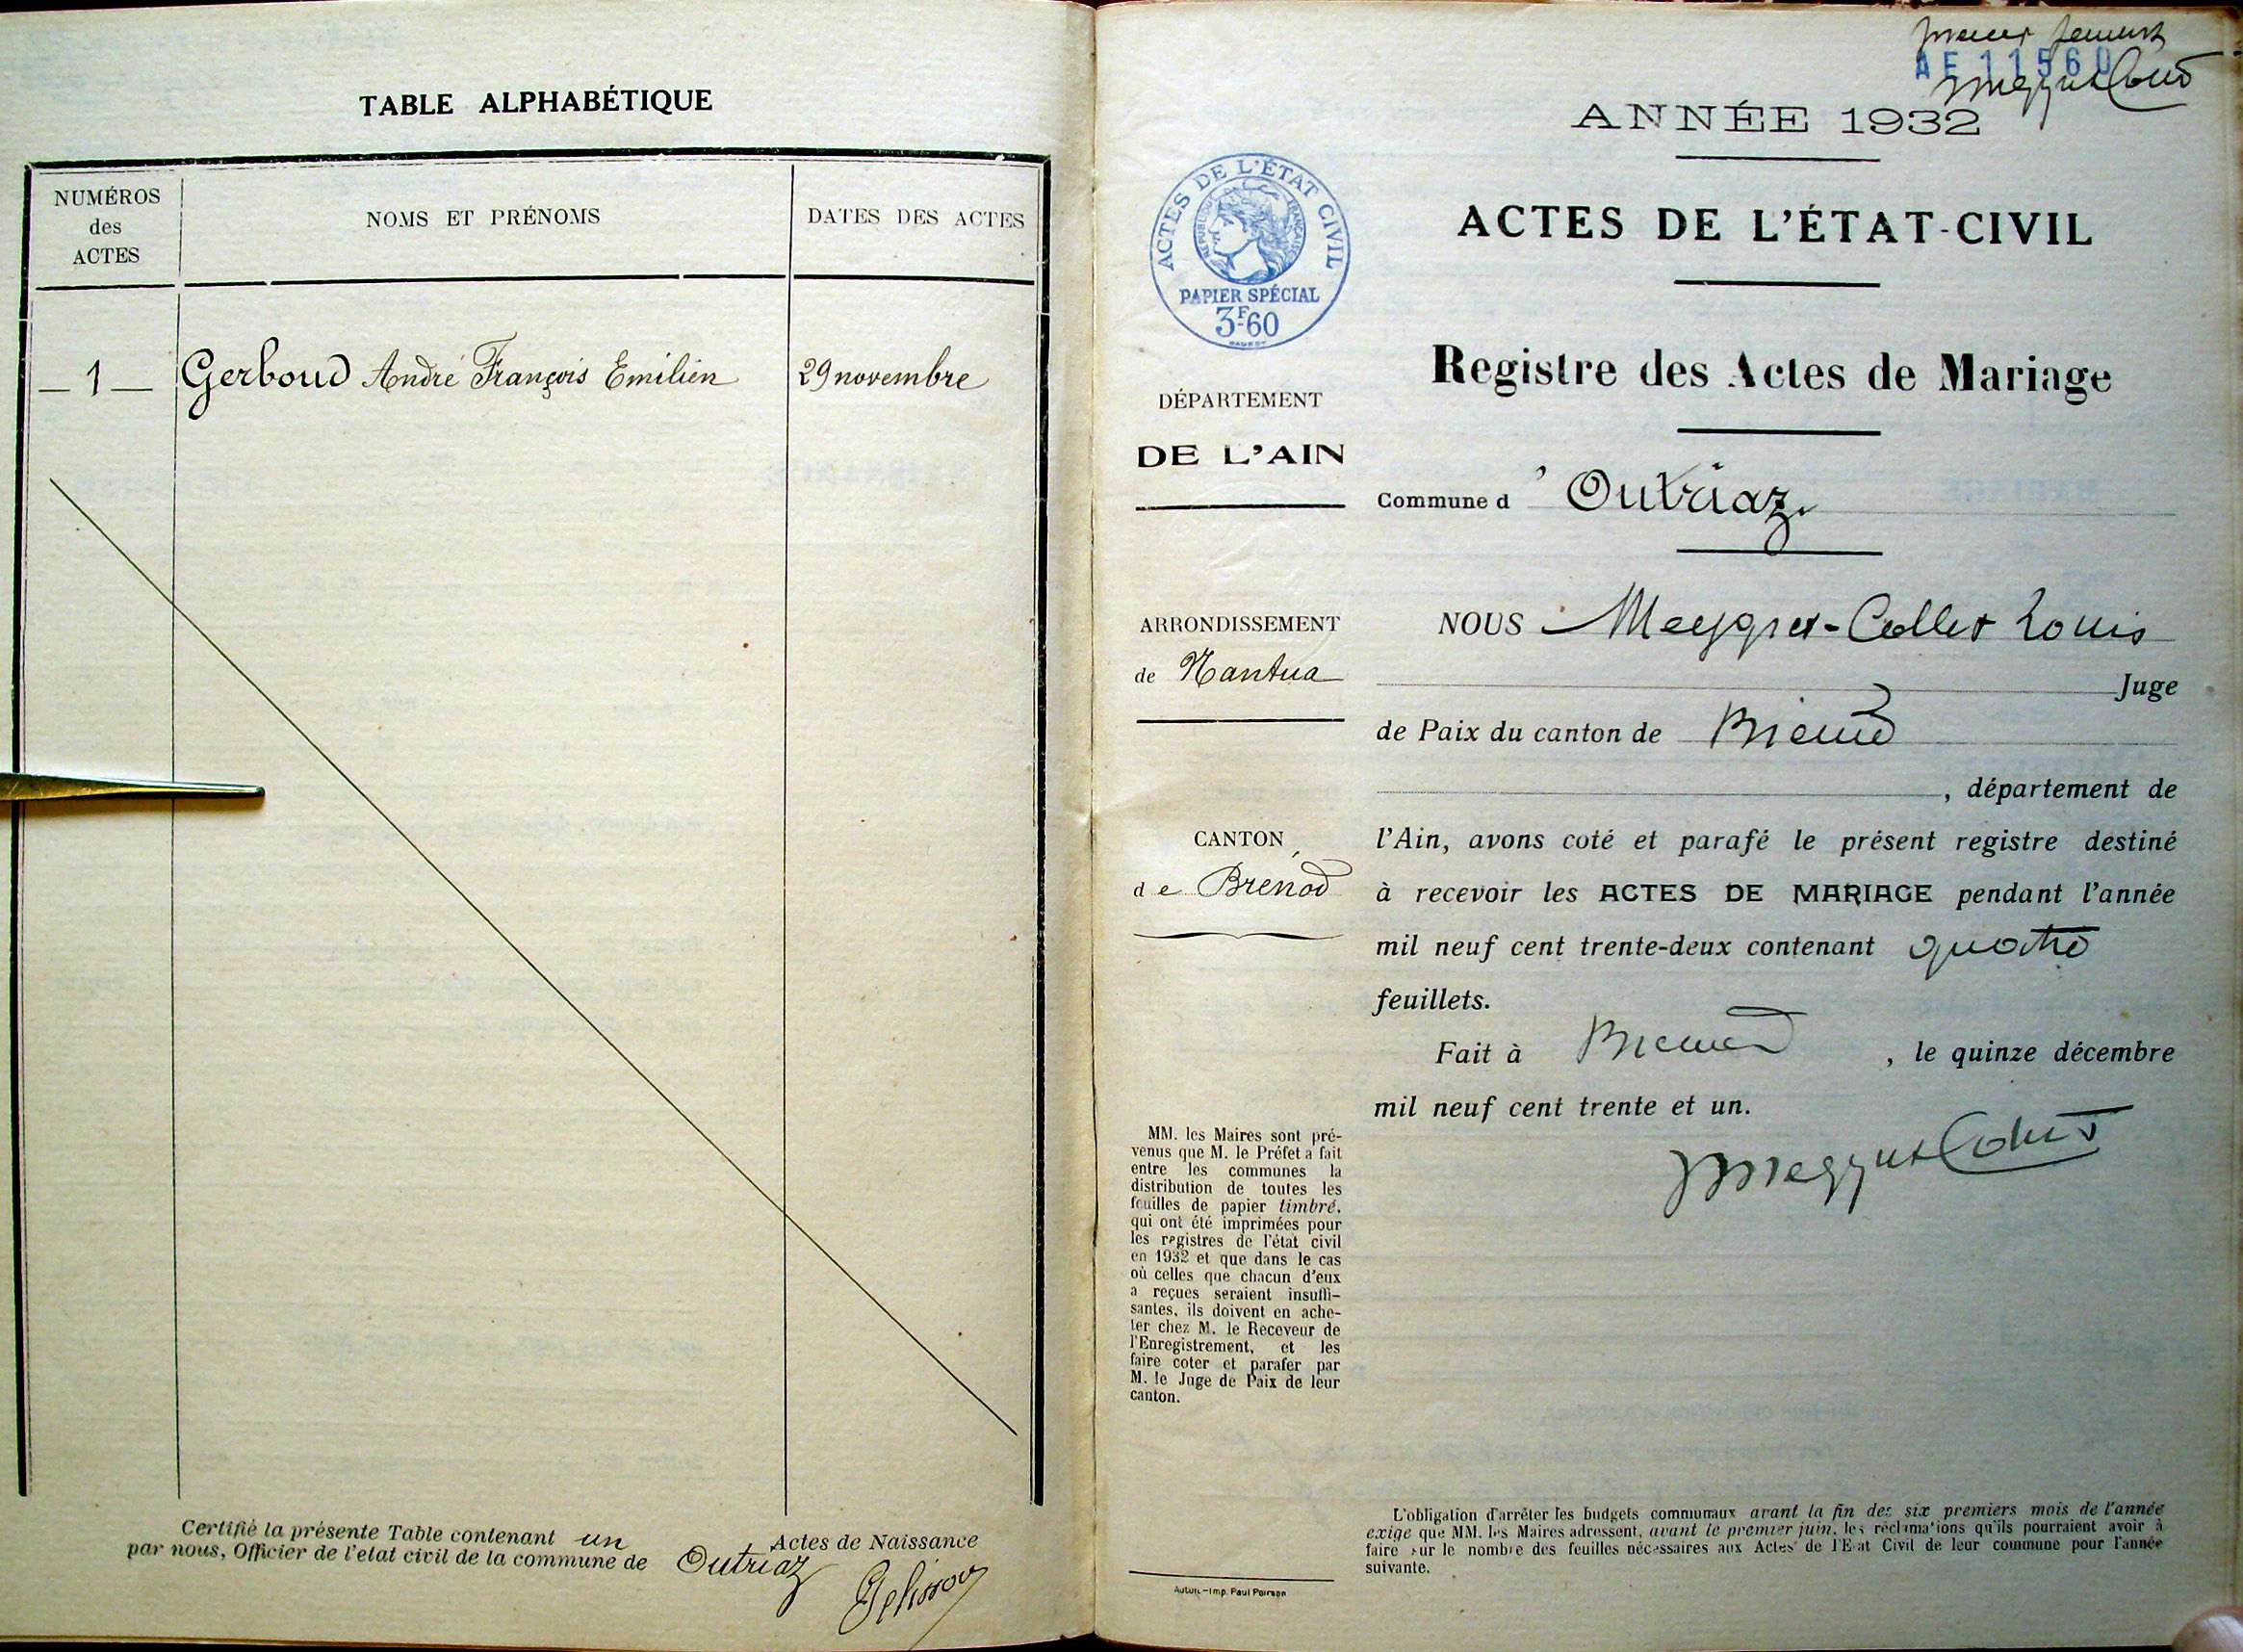 TABLE ALPHABÉTIQUE
NUMÉROS
des
ACTES
NOMS ET PRÉNOMS
DATES DES ACTES
1
Gerboud André François Emilien
29 novembre
Certifié la présente Table contenant un Actes de Naissance
par nous, Officier de l'etat civil de la commune de Outriaz
AE 11560
ANNÉE 1932
ACTES DE L'ÉTAT CIVIL
RÉPUBLIQUE FRANÇAISE
PAPIER SPÉCIAL
3F60
ACTES DE L'ÉTAT-CIVIL
Registre des Actes de Mariage
DÉPARTEMENT
DE L'AIN
Commune d'Outriaz.
ARRONDISSEMENT
de Nantua
CANTON
de Brénod
NOUS Meygret-Collet Louis
Juge
de Paix du canton de Brénod
, département de
l'Ain, avons coté et parafé le présent registre destiné
à recevoir les ACTES DE MARIAGE pendant l'année
mil neuf cent trente-deux contenant quatre
feuillets.
Fait à Brénod, le quinze décembre
mil neuf cent trente et un.
MeygretCollet
MM. les Maires sont pré-
venus que M. le Préfet a fait
entre les communes la
distribution de toutes les
feuilles de papier timbré,
qui ont été imprimées pour
les registres de l'état civil
en 1932 et que dans le cas
où celles que chacun d'eux
a reçues seraient insuffi-
santes, ils doivent en ache-
ter chez M. le Receveur de
l'Enregistrement, et les
faire coter et parafer par
M. le Juge de Paix de leur
canton.
Autun.-Imp. Paul Poirson
L'obligation d'arrêter les budgets communaux avant la fin des six premiers mois de l'année
exige que MM. les Maires adressent, avant le premier juin, les réclamations qu'ils pourraient avoir à
faire sur le nombre des feuilles nécessaires aux Actes de l'Etat Civil de leur commune pour l'année
suivante.